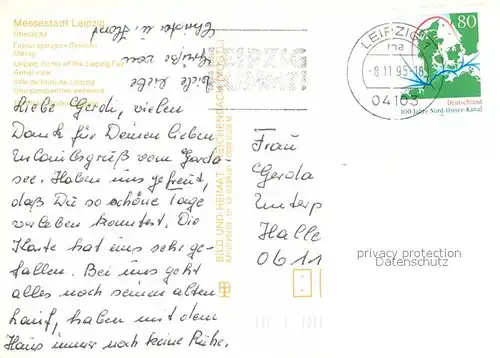 Messestadt Leipzig
Übersicht
Leipzig, home of the Leipzig Fair
Aerial view
Ville de foire de Leipzig
Una perspectiva aérea
Liebe Gerdi, vielen
Dank für Deinen lieben
Urlaubsgruß vom Garda-
see. Haben uns gefreut,
daß Du so schöne Tage
verleben konntest. Die
Karte hat uns sehr ge-
fallen. Bei uns geht
alles noch seinen alten
Lauf, haben mit dem
Haus immer noch keine Ruhe.
Viele liebe
Grüße von
Christa u. Horst
BILD UND HEIMAT REICHENBACH
LEIPZIG
LEIPZIG 1
ma
-8.11.95-18
04103
80
Deutschland
100 Jahre Nord-Ostsee-Kanal
Frau
Gerda
Unterp
Halle
0611
privacy protection
Datenschutz